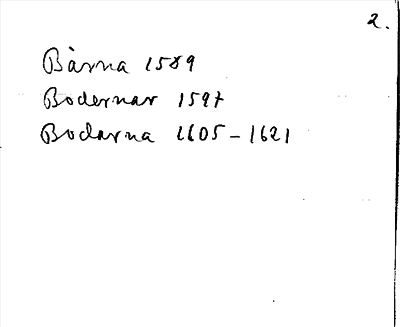 2.
Bàrna 1589
Bodernar 1597
Bodarna 1605-1621